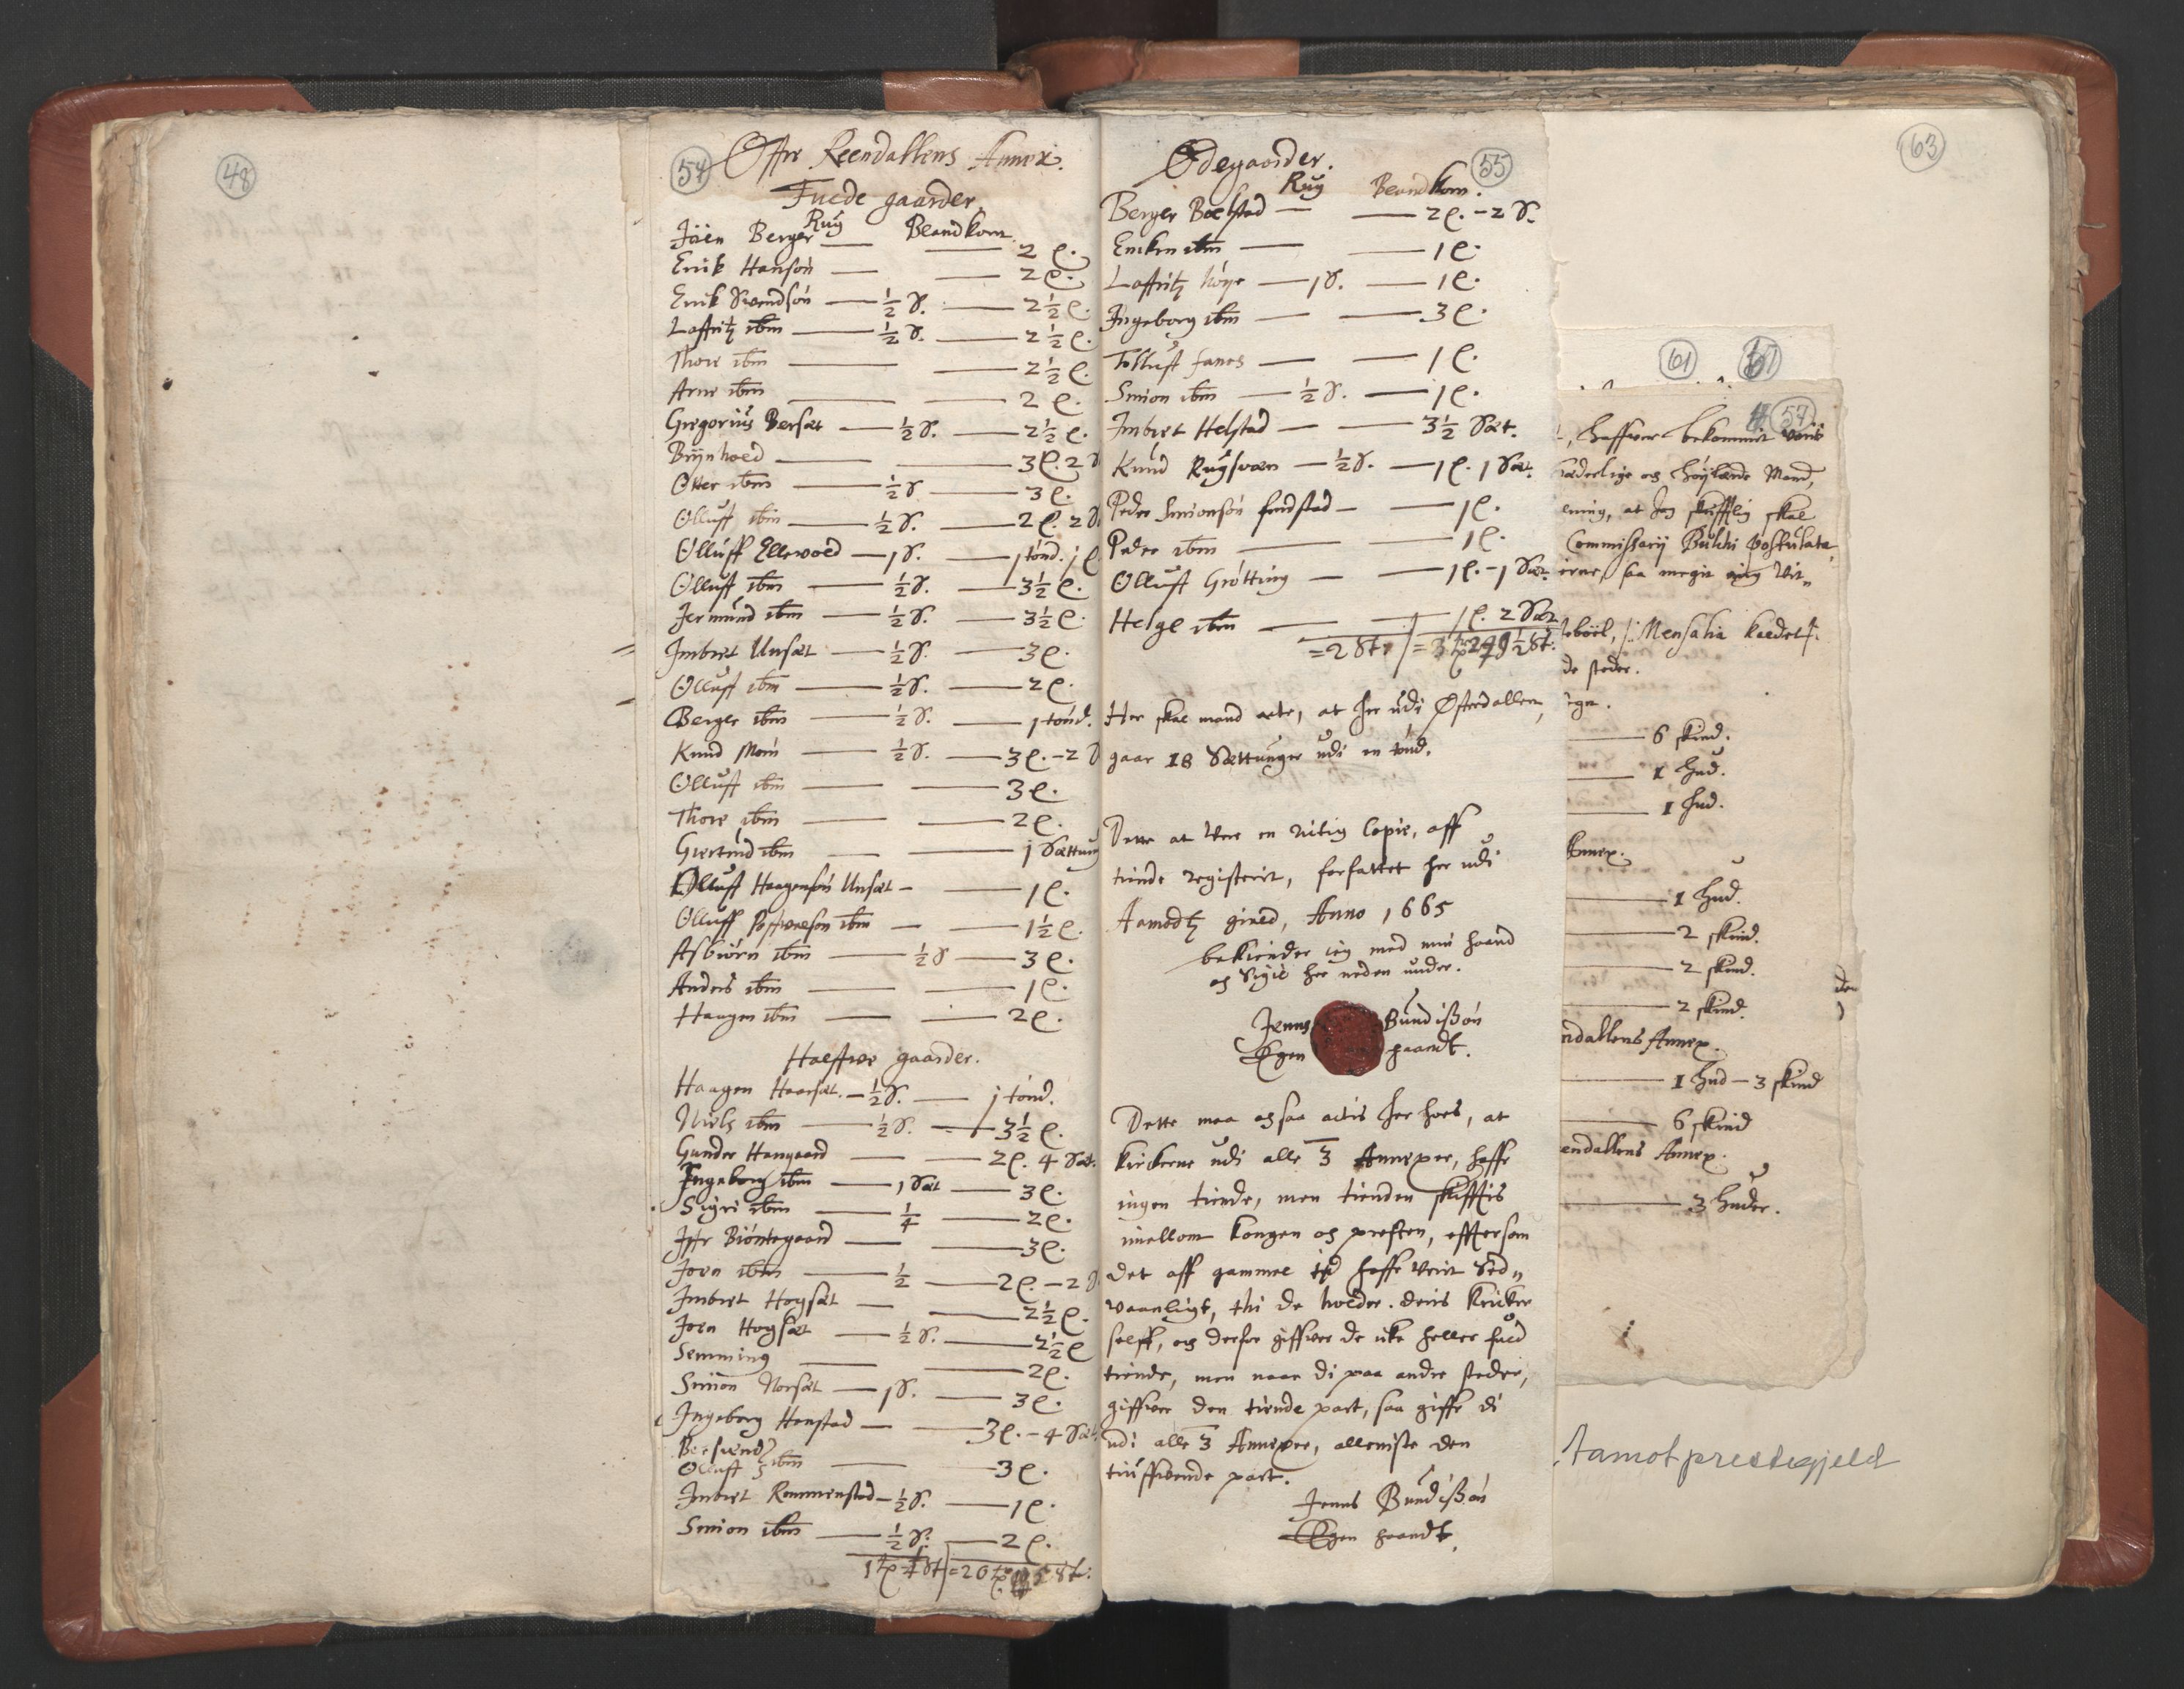 48
54
Offre Reendallens Annex.
Fuede gaarder.
Rug Blandkorn.
Joen Berger — — 2 ℓ.
Erik Hansøn — — 2 ℓ.
Erik Swendsøn — ½ S. — 2½ ℓ.
Laffritz ibm — ½ S. — 2½ ℓ.
Thore ibm — 2½ ℓ.
Arne ibm — — 2 ℓ.
Gregorius Bersæt — ½ S. — 2½ ℓ.
Brynhoed — — 3 ℓ. 2 S
Otter ibm — ½ S — 3 ℓ.
Olluff ibm — ½ S. — 2 ℓ. 2 S
Olluff Ellewoed — 1 S. — 1 tønd. 1 ℓ
Olluff ibm — ½ S. — 3½ ℓ.
Jermund ibm — ½ S. — 3½ ℓ.
Imbret Unsæt — ½ S. — 3 ℓ.
Olluff ibm — ½ S. — 2 ℓ.
Berger ibm — ½ S. — 1 tønd.
Knud Moen — ½ S. — 3 ℓ. - 2 S
Olluff ibm — — 3 ℓ.
Thore ibm — — 2 ℓ.
Giertrud ibm — — 1 Sættung
Olluff Haagensøn Unsæt — — 1 ℓ.
Olluff ibm — — 1½ ℓ.
Asbiørn ibm — ½ S — 3 ℓ.
Anders ibm — — 1 ℓ.
Haagen ibm — — 2 ℓ.
Halffwe gaarder.
Haagen Haarsæt. — ½ S. — 1 tønd.
Niels ibm — ½ S. — 3½ ℓ.
Gunder Hangaard — — 2 ℓ. 4 Sæt.
Ingeborg ibm — 1 Sæt — 3 ℓ.
Sigri ibm — ¼ — 2 ℓ.
Iffr Biøntegaard — — 3 ℓ.
Joen ibm — ½ — 2 ℓ. - 2 S.
Imbret Hogsæt — — 2½ ℓ.
Joen Hogsæt — ½ S. — 2½ ℓ
Semming — — 2 ℓ.
Simon Norsæt — 1 S. — 3 ℓ.
Ingeborg Hanstad — — 3 ℓ. - 4 Sæt.
Bersuend
Olluff ibm — — 3 ℓ.
Imbret Rommenstad — ½ S. — 1 ℓ.
Simon ibm — ½ S. — 2 ℓ.
55
Ødegaarder.
Rug Blandkorn.
Berger Bolstad — — 2 ℓ. - 2 S.
Enken ibm — — 1 ℓ.
Laffritz høye — 1 S. — 1 ℓ.
Ingeborg ibm — — 3 ℓ.
Tolluff fanes — — 1 ℓ.
Simon ibm — ½ S. — 1 ℓ.
Imbret Helstad — — 3½ Sæt.
Knud Rugsveen — ½ S. — 1 ℓ. 1 Sæt.
Peder Simonsøn fendstad — — 1 ℓ.
Peder ibm — — 1 ℓ.
Olluff Grøtting — — 1 ℓ. - 1 Sæt.
Helge ibm — — 1 ℓ. 2 Sæt
Her skal mand acte, at her udi Østerdallen,
gaar 18 Sættunger udi en tønd.
Dette at Vere en rictig Copie, aff
tiende registerit, forfattet her udi
Aamodtz gield, Anno 1665
bekiender ieg med min haand
og Signe her neden under.
Jenns Bundißøn
Egen haandt.
Dette maa og saa actis her hoes, at
kirkerne udi alle 3 Annexer, haffe
ingen tiende, men tienden skifftis
imellom kongen og presten, efftersom
det aff gammel tid haffe verit Sed„
vaanligt, thi de holder deris Kircker
selff, og derfor giffver de icke heller fuld
tiende, men naar di paa andre steder,
giffver den tiende part, saa giffe di
udi alle 3 Annexer, alleniste den
tiuffvende part.
Jenns Bundißøn
Egen haandt.
63
61
57
haffver bekommit voris
hæderlige og høylærde Mand,
ening, at Jeg skrifftlig skal
Commissarij Postulata
saa megit mig Vit„
Mensalia kaldet
de steder.
6 skind.
1 hud.
1 hud.
Annex.
1 hud.
2 skind.
2 skind.
2 skind.
ndallens Annex.
1 hud — 3 skind
6 skind
endallens Annex.
3 huder.
Aamot prestegjeld